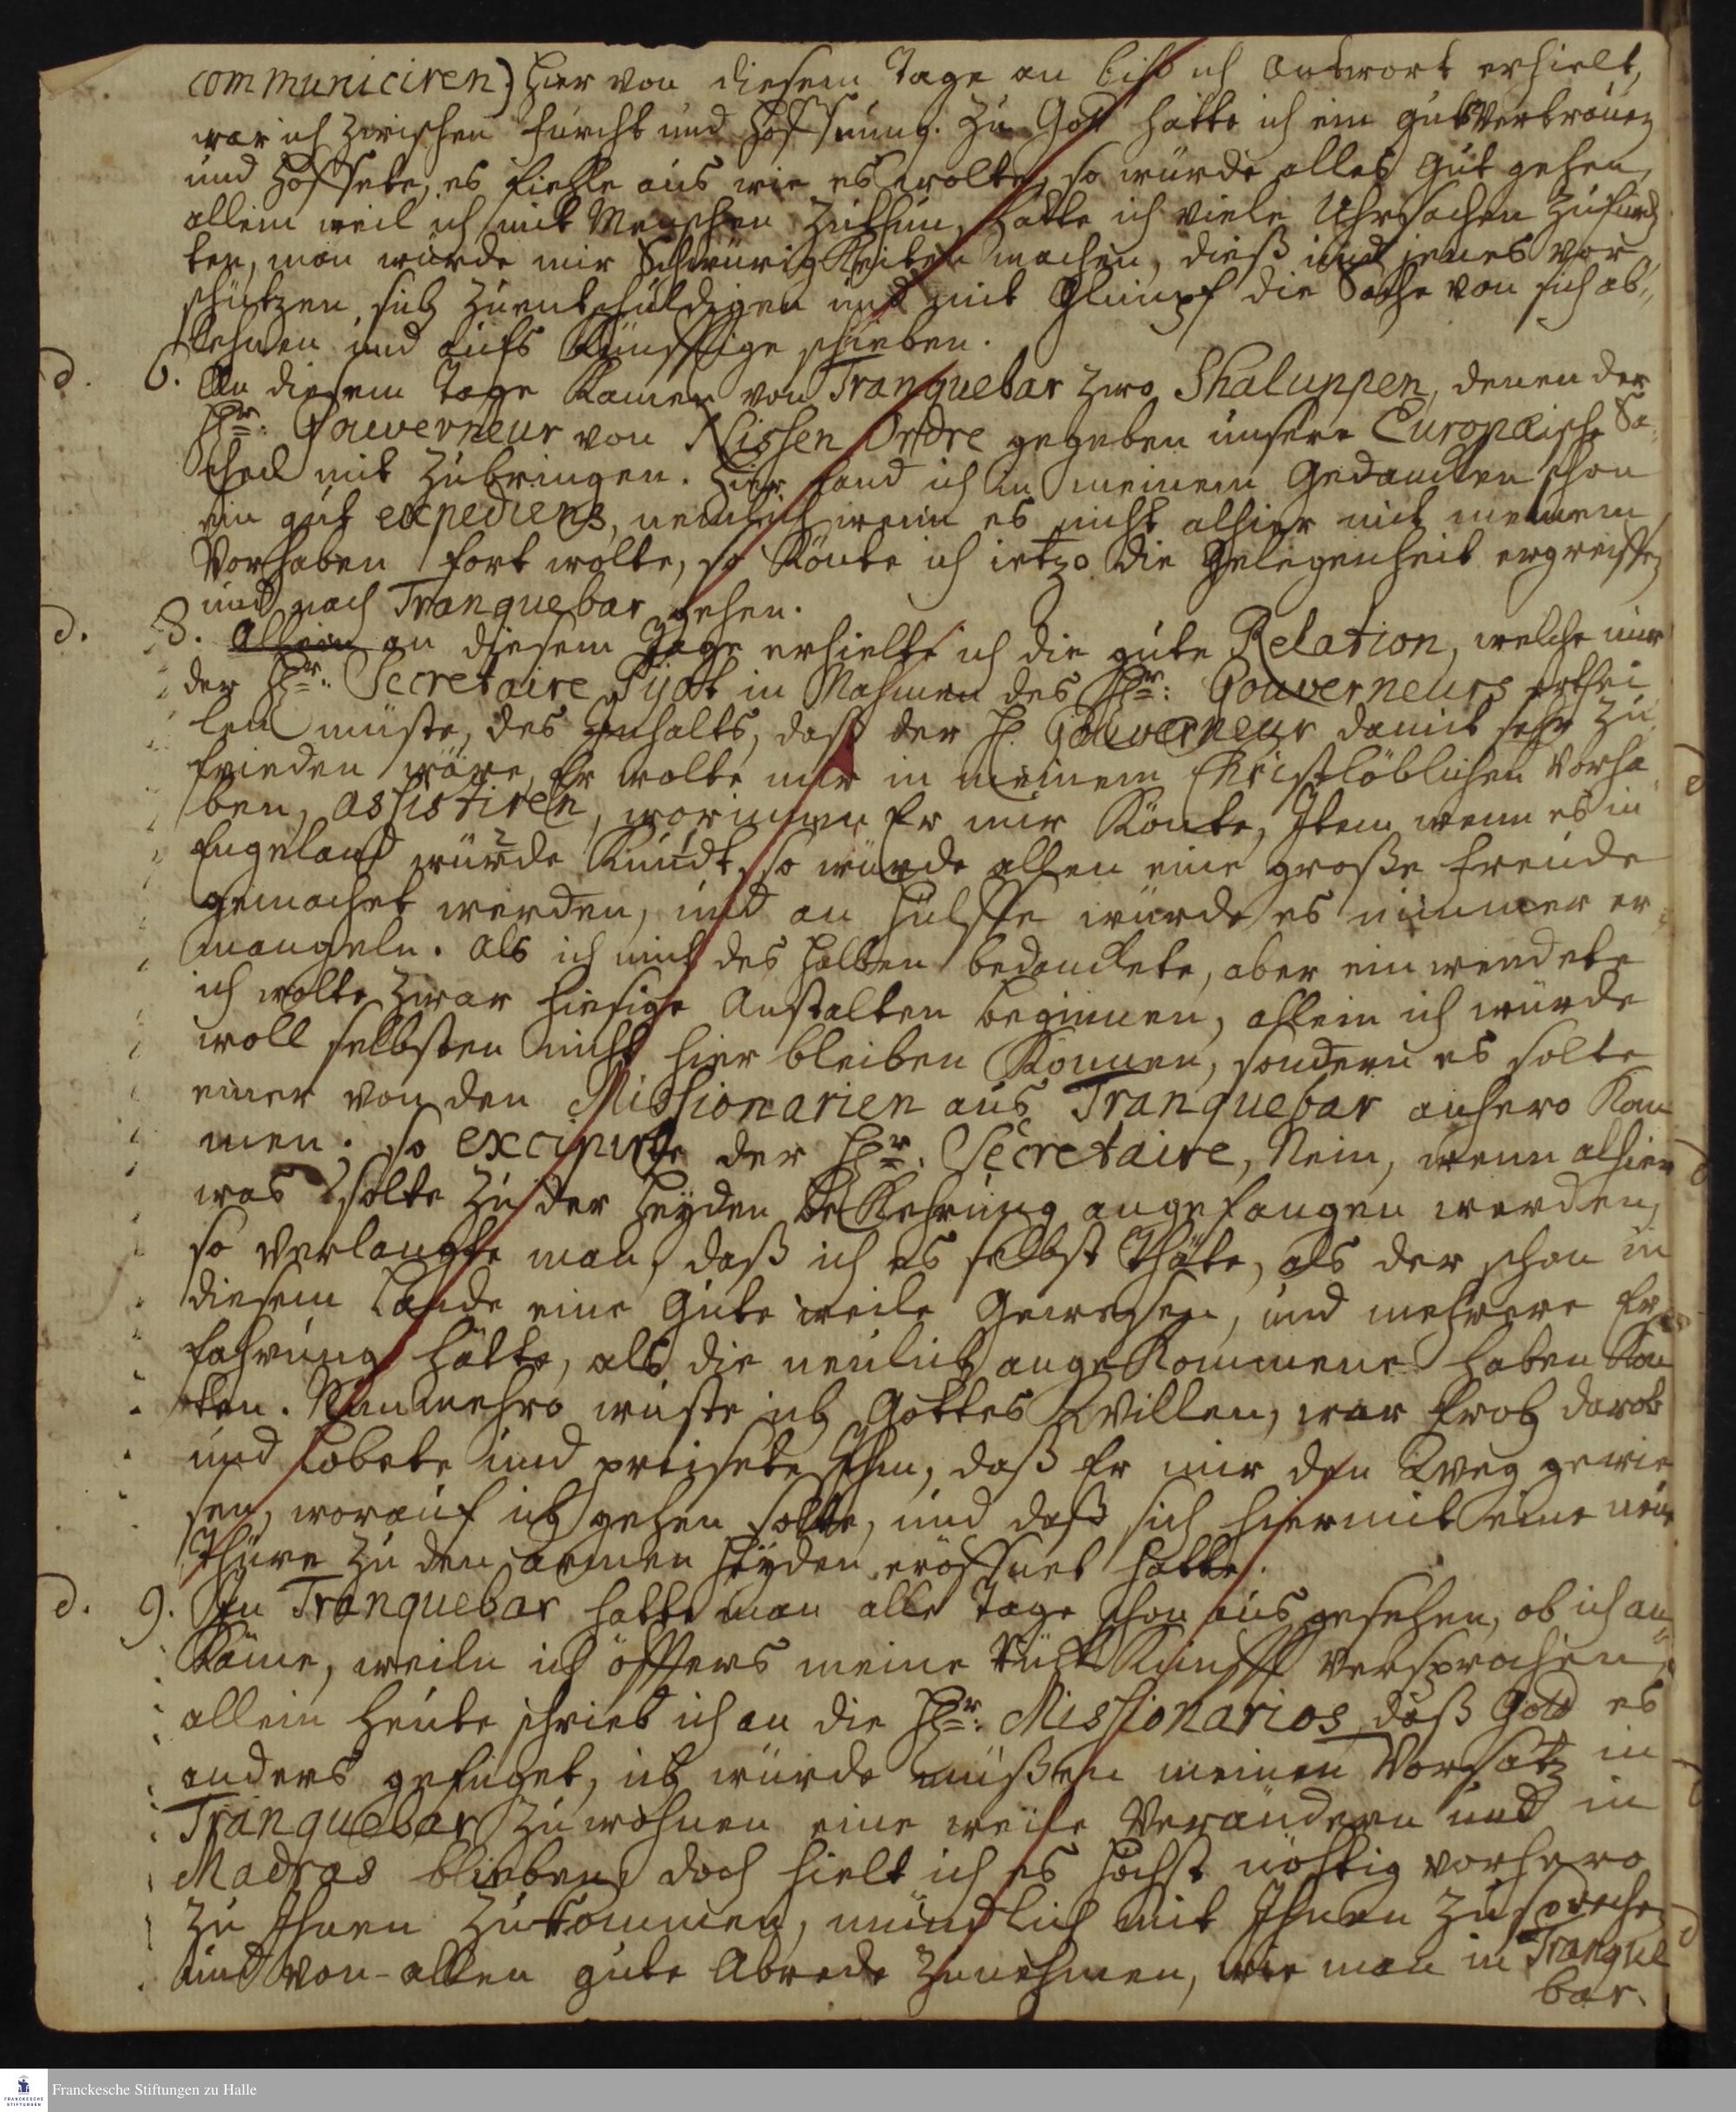 communiciren) Hier von diesem Tage an biß ich Antwort erhielt,
war ich zwischen Furcht und Hoffnung. Zu Gott hatte ich ein gut Vertrauen
und hoffete, es fielle aus wie es wolte, so würde alles gut gehen,
allein weil ich mit Menschen zuthun, hatte ich viele Uhrsachen zufürch
ten, man würde mir Schwürigkeiten machen, dieß und jenes vor„
schützen, sich zuentschuldigen und mit Glimpf die Sache von sich ab„
lehnen und aufs Künfftige schieben.
d. 6. An diesem Tage kamen von Tranquebar zwo Shaluppen, denen der
Hr: Gouverneur von Nissen Ordre gegeben unsere Europæische Sa„
chen mit zubringen. Hier fand ich in meinem Gedancken schon
ein gut expediens, nemlich wenn es nicht alhier mit meinem
Vorhaben fort wolte, so könte ich ietzo die Gelegenheit ergreiffen
und nach Tranquebar gehen.
d. 8. Allein an diesem Tage erhielte ich die gute Relation, welche mir
der Hr: Secretaire Pyott in Nahmen des Hr: Gouverneurs erthei
len müste, des Inhalts, daß der H. Gouverneur damit sehr zu
frieden wäre, Er wolte mir in meinem Christlöblichen Vorha
ben, assistiren, worinnen Er mir könte, Item wenn es in
Engeland würde kundt, so würde allen eine große Freude
gemachet werden, und an Hülffe würde es nimmer er„
mangeln. Als ich mich des halben bedanckete, aber einwendete
ich wolte zwar hiesige Anstalten beginnen, allein ich würde
woll selbsten nicht hier bleiben können, sondern es solte
einer von den Missionarien aus Tranquebar anhero kom
men: so excipirte der Hr: Secretaire, Nein, wenn alhier
was solte zu der Heyden Bekehrung angefangen werden,
so verlangte man, daß ich es selbst thäte, als der schon in
diesem Lande eine gute weile gewesen, und mehrere Er„
fahrung hätte, als die neulich angekommene haben kön
ten. Nunmehro wuste ich Gottes Willen, war froh darob
und lobete und preisete Ihm, daß Er mir den Weg gewie
sen, worauf ich gehen solte, und daß sich hiermit eine neue
Thüre zu den armen Heyden eröffnet hatte.
d. 9. In Tranquebar hatte man alle Tage schon aus gesehen, ob ich an„
käme, weiln ich öffters meine Rückkunfft versprochen,
allein heute schrieb ich an die Hr: Missionarios, daß Gott es
anders gefüget, ich würde müßen meinen Vorsatz in
Tranquebar zu wohnen eine weile verändern und in
Madras blieben, doch hielt ich es höchst nöhtig vorhero
zu Ihnen zukommen, mündlich mit Ihnen zusprechen
und von allen gute Abrede zunehmen, wie man in Tranque
bar.
Franckesche Stiftungen zu Halle
FRANCKESCHE
STIFTUNGEN